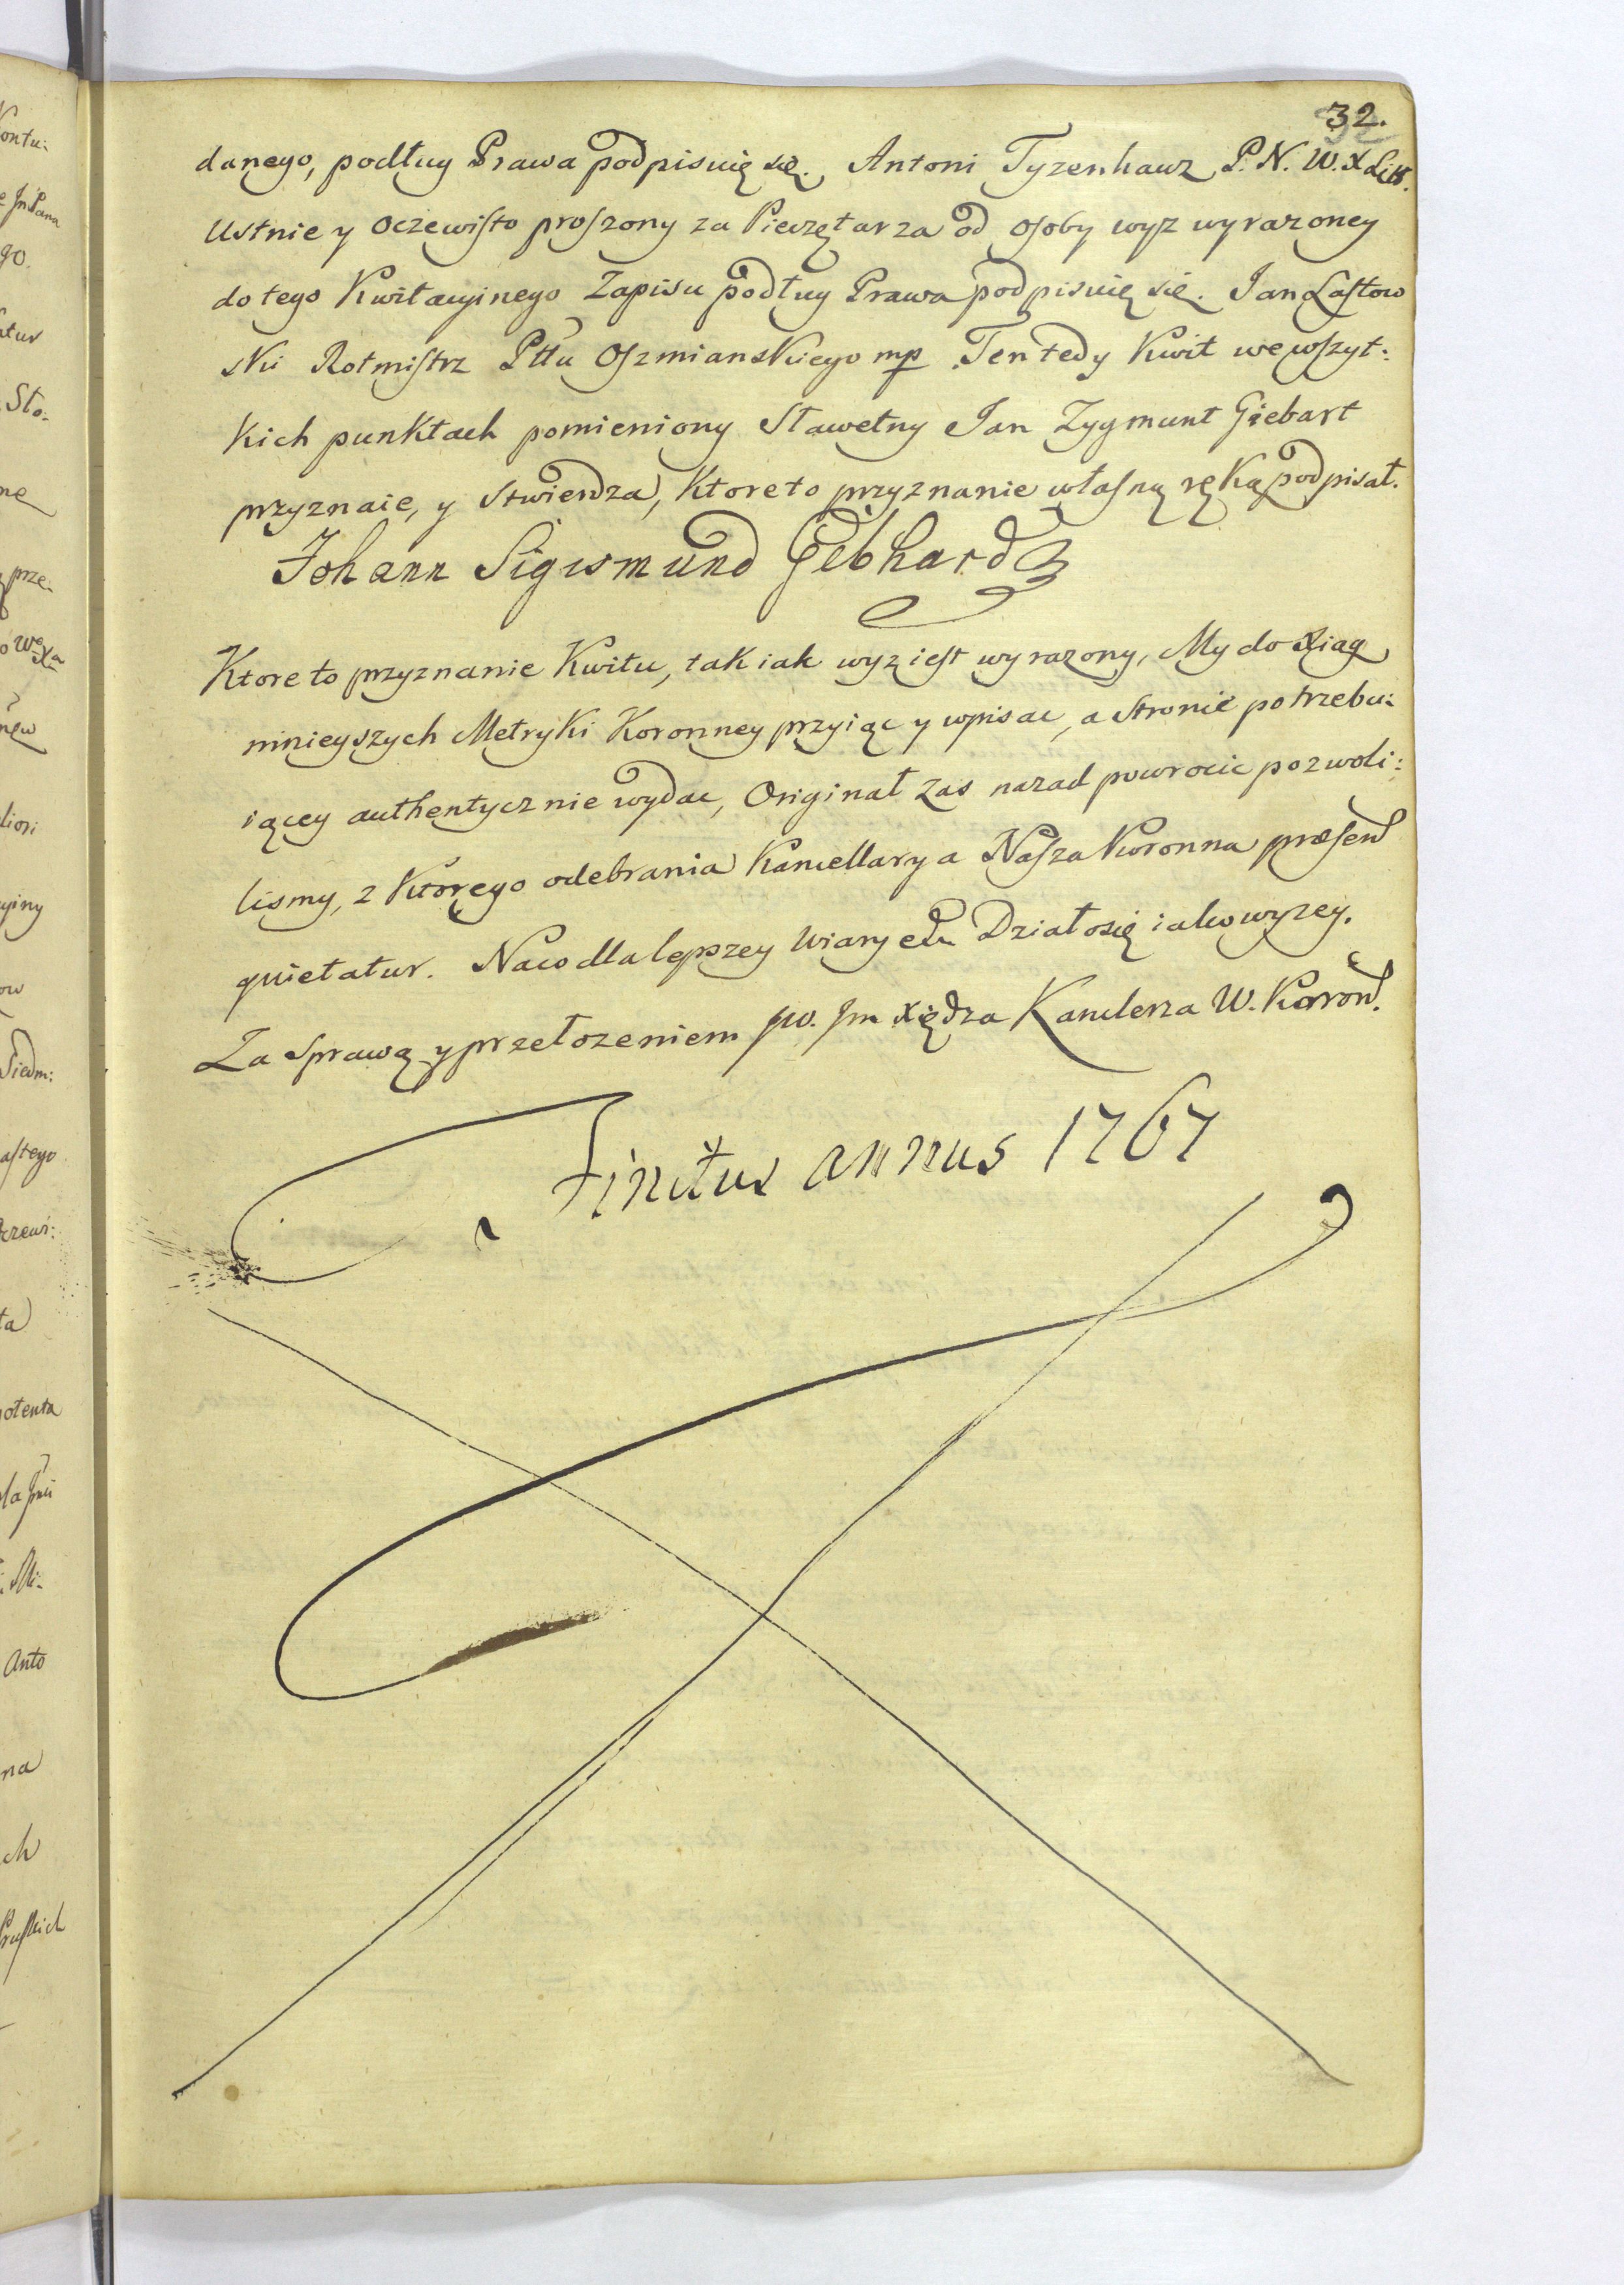 32.
danego, podług Prawa podpisuię się. Antoni Tyzenhauz P. N. W. X Litt.
Ustnie y oczewisto proszony za Pieczętarza od osoby wyz wyrazoney
do tego Kwitacyinego Zapisu podług Prawa podpisuię się. Jan Łastow
ski Rotmistrz Pttu Oszmianskiego mp Ten tedy Kwit we wszyt:
kich punktach pomieniony Sławetny Jan Zygmunt Giebart
przyznaie, y stwierdza, Ktore to przyznanie własną ręką podpisał.
Johann Sigismund Gebhard
Ktore to przyznanie Kwitu, tak iak wyz iest wyrazony, My do Xiąg
ninieyszych Metryki Koronney przyiąc y wpisac, a stronie potrzebu:
iącey authentycznie wydac, Originał zas nazad powrocic pozwoli:
lismy, z Ktorego odebrania Kancellarya Nasza Koronna præsent
quietatur. Naco dla lepszey Wiary etc Działo się iako wyzey.
Za sprawą y przełozeniem JW. Jm Xiędza Kanclerza W. Koronn.
Finitus annus 1767
Kontu:
e Jn Pana
go.
Sto.
ne
prze.
liosi
yiny
ow
Siedm:
astego
czewi:
ta
otenta
Anto
na
ch
Pruskich